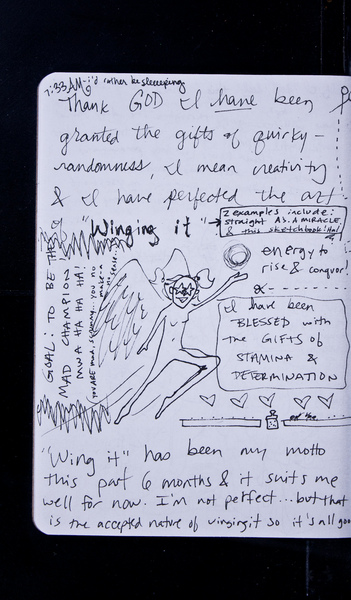 7:33 AM - i'd rather be sleeeeping
Thank GOD I have been
granted the gifts of quirky-
randomness, I mean creativity
& I have perfected the art
"Winging it"
2 examples include:
straight A's. A MIRACLE
& this sketchbook! Ha!
energy to
rise & conquer!
I have been
BLESSED with
the GIFTS of
STAMINA &
DETERMINATION
GOAL: TO BE THE
MAD CHAMPION
MWA HA HA HA!
you ARE mad, stephany... you no
make-a
no sense..
on the
"Wing it" has been my motto
this past 6 months & it suits me
well for now. I'm not perfect... but that
is the accepted nature of winging it so it's all goo